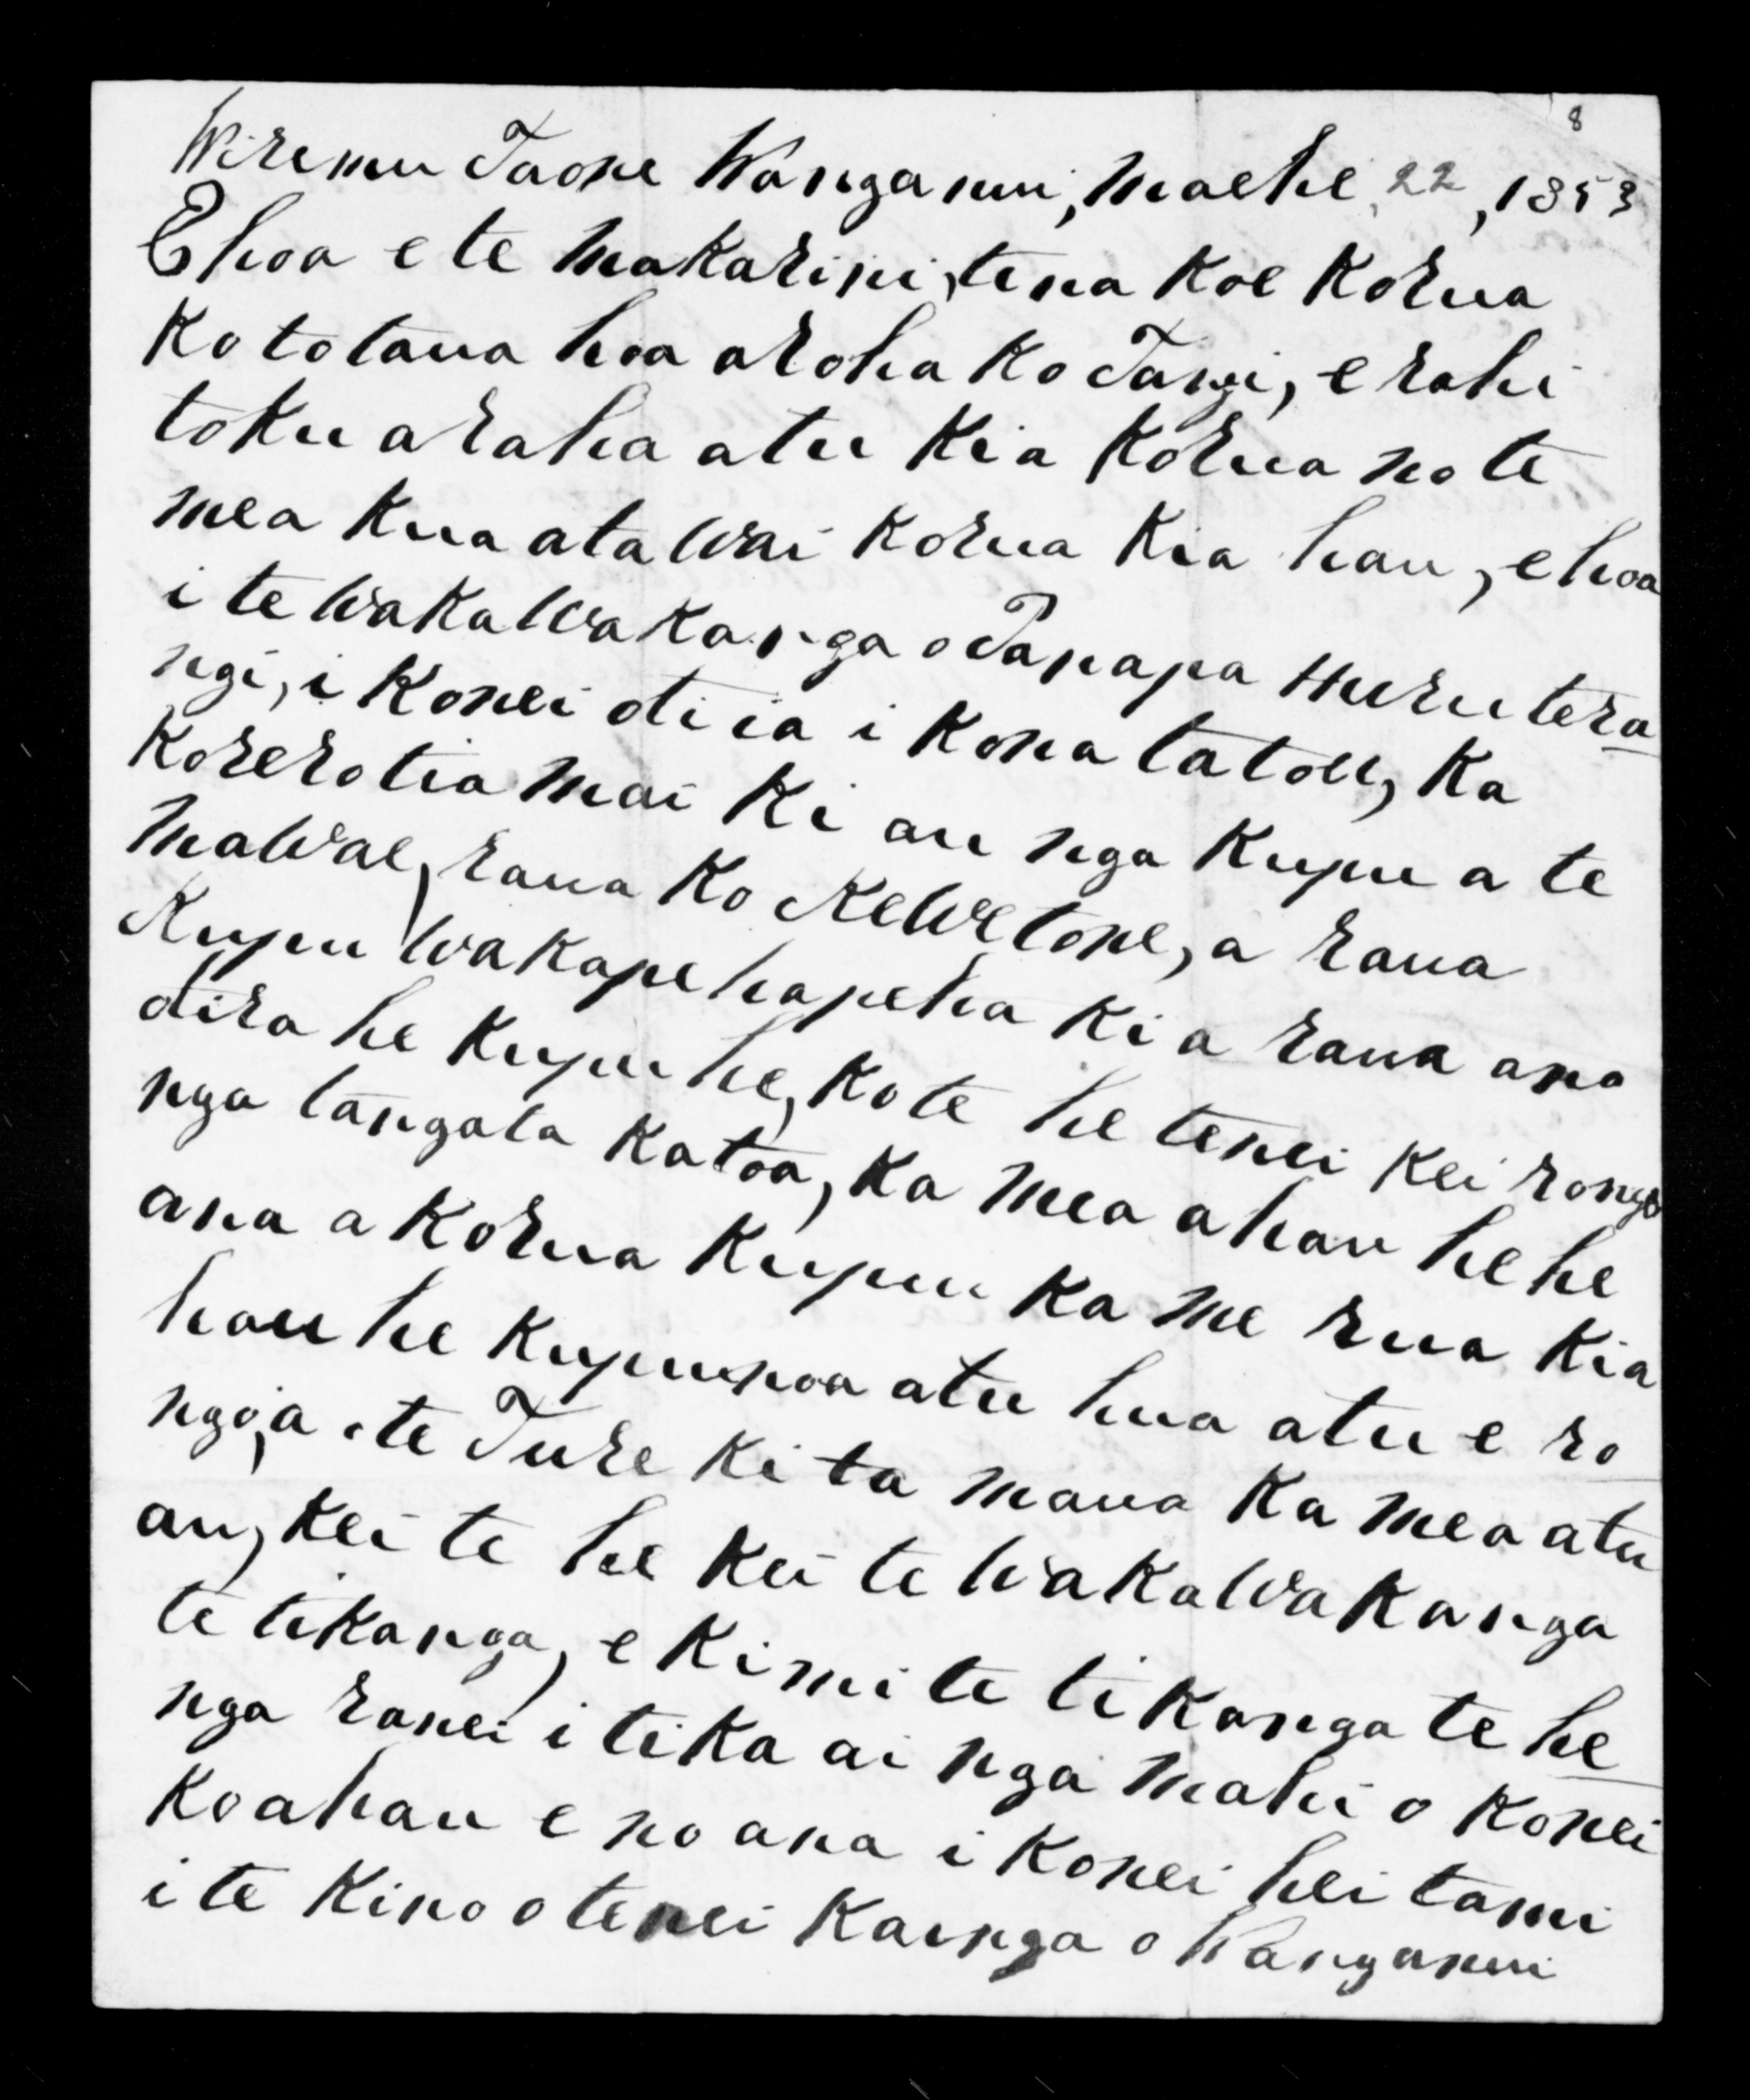 8
Wiremu Taone Wanganui, Maehe, 22, 1853
Ehoa e te Makarini, tena Koe Korua
Ko to taua hoa aroha Ko Tangi, e rahi
toku araha atu Kia Korua no te
mea Kua ata Wai Korua Kia hau, e hoa
i te WakaWakanga o Tanapa Huru tera
ngi, i Konei oti ia i Kona tatou, Ka
Korerotia Mai Ki au nga Kupu a te
MaWae, raua Ko ReWetone, a raua
Kupu Wakapehapeha Ki a raua ano
otira he Kupu he, Ko te he tenei Kei rongo
nga tangata Katoa, Ka Mea ahau he he
ana a Korua Kupu Ka Me rua Kia
hau he Kupu noa atu hua atu e ro
ngo, a te Ture Ki ta maua Ka mea atu
au, Kei te he Kei te WakaWakanga
te tikanga, e Kimi te tikanga te he
nga ranei i tika ai nga mahi o Konei
Ko ahau e no ana i Konei hei tami
i te Kino o tenei Kainga o Wanganui